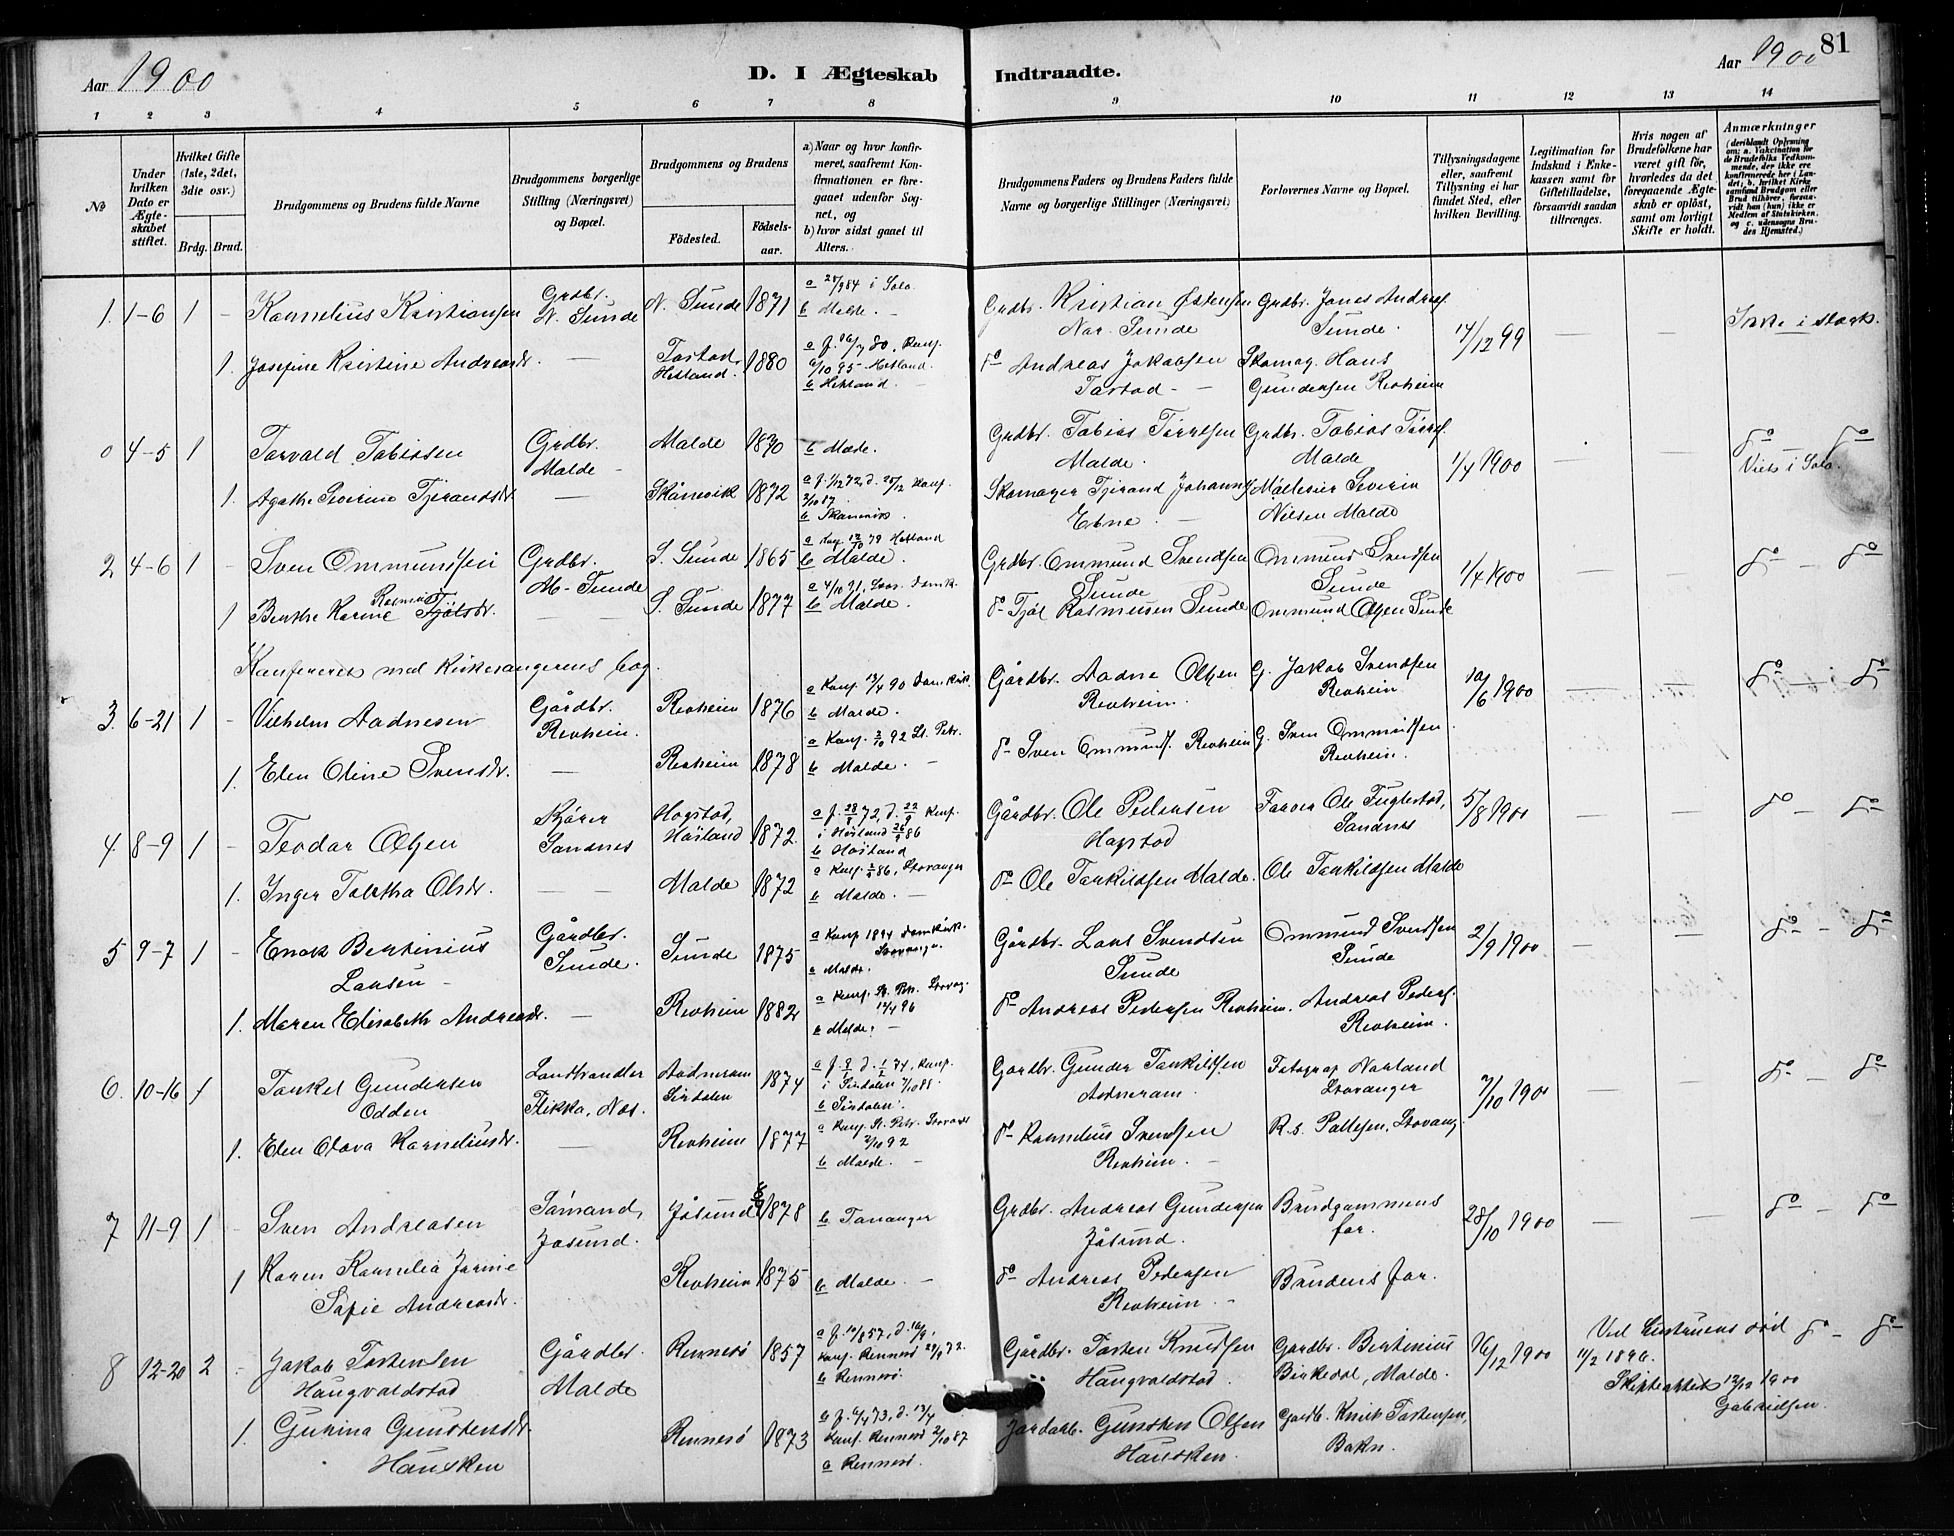 Aar 1900
D. I Ægteskab Indtraadte.
Aar 1900 81
1 2 3 4 5 6 7 8 9 10 11 12 13 14
№
Under hvilken Dato er Ægteskabet stiftet.
Hvilket Gifte (1ste, 2det, 3die osv.)
Brdg. Brud.
Brudgommens og Brudens fulde Navne
Brudgommens borgerlige Stilling (Næringsvei) og Bopæl.
Brudgommens og Brudens
Födested. Födselsaar.
a) Naar og hvor konfirmeret, saafremt Konfirmationen er foregaaet udenfor Sognet, og
b) hvor sidst gaaet til Alters.
Brudgommens Faders og Brudens Faders fulde Navne og borgerlige Stillinger (Næringsvei)
Forlovernes Navne og Bopæl.
Tillysningsdagene eller, saafremt Tillysning ei har fundet Sted, efter hvilken Bevilling.
Legitimation for Indskud i Enkekassen samt for Giftetilladelse, forsaavidt saadan tiltrænges.
Hvis nogen af Brudefolkene har været gift før, hvorledes da det foregaaende Ægteskab er oplöst, samt om lovligt Skifte er holdt.
Anmærkninger (deriblandt Oplysning om: a. Vakcination for de Brudefolks Vedkommende, der ikke ere konfirmerede her i Landet; b. hvilket Kirkesamfund Brudgom eller Brud tilhörer, forsaavidt han (hun) ikke er Medlem af Statskirken, og c. udensogns Brudes Hjemsted.)
1. 1-6 1 - Kornelius Kristiansen Grdbr. N. Sunde N. Sunde 1871 b Malde. - Grdbr. Kristian Østensen Nor. Sunde Grdbr. Jonas Andreas. Sunde. 17/12 99 — — Ikke i slægt.
1. Josefine Kristine Andreasdr. — Tastad, Hetland. 1880 a f. 16/7 80, Konf. 6/10 95 Hetland. b Hetland. - do Andreas Jakobsen Tastad - Skomag. Hans Gundersen Revheim
0 4-5 1 Torvald Tobiassen Grdbr. Malde - Malde 1870 b Malde. Grdbr. Tobias Torresen Malde. Grdbr. Tobias Torres. Malde 1/4 1900 — — do — do Viet i Sola.
1. Agathe Severine Tjerandsdr. — Skånevik 1872 b Skånevik. Skomager Tjerand Johannes. Ebne. - Møllerier Severin Nilsen Malde
2 4-6 1 - Sven Ommundsen Grdbr. M. Sunde S. Sunde 1865 b Malde. Grdbr. Ommund Svendsen Sunde Ommund Svendsen Sunde 1/4 1900 — — do — do
1 Berthe Karine Rasmine Tjølsdr. — — S. Sunde 1877 b Malde. do Tjøl Rasmussen Sunde Ommund Olsen Sunde
Konfereret med Kirkesangerens bog.
3. 6-21 1 - Vilhelm Aadnesen Gårdbr. Revheim. Revheim 1876 a Konf. 13/4 90 Domkirk. b Malde. Gårdbr. Aadne Olsen Revheim. G. Jakob Svendsen Revheim 10/6 1900 — — do — do
1. Elen Oline Svensdr. — Revheim 1878 a Konf. 2/10 92 St. Petr. b Malde. - do Sven Ommunds. Revheim G. Sven Ommundsen Revheim.
4. 8-9 1 - Teodor Olsen Kjører Sandnes Hogstad, Høiland 1872. a f. 28/8 72, d. 22/9 Konf. i Høiland 26/9 86 b Høiland Gårdbr. Ole Pedersen Hogstad Farver Ole Fuglestad, Sandnes 5/8 1900 do — do
1. Inger Tabitha Olsdr. — — Malde 1872 b Malde. - do Ole Torkildsen Malde. Ole Torkildsen Malde
5 9-7 1 - Enok Bertinius Larsen - Gårdbr. Sunde. Sunde 1875 a Konf 1894 Domkirk. Stavanger. a Malde. Gårdbr. Lars Svendsen Sunde Ommund Svendsen Sunde 2/9 1900 — — do — do
1. Maren Elisabeth Andreasdr. — Revheim 1882 a Konf. St. Petr. Stavang. 12/4 96 b Malde. - do Andreas Pedersen Revheim. Andreas Peders. Revheim.
6. 10-16 1 Torkel Gundersen Odden Landhandler Flikka, Næs. Aadneram Sirdalen 1874 b Sirdalen. Gårdbr. Gunder Torkildsen Aadneram. Fotograf Norland Stavanger 7/10 1900 — — do — do
1. Elen Olava Korneliusdr. — Revheim 1877 a Konf. St. Petr. Stavanger 2/10 92 b Malde. - do Kornelius Svendsen Revheim. - R. S. Pallesen, Stavang.
7 11-9 1 - Sven Andreasen Sømand, Jåsund. Jåsund 1878 b Tananger Grdbr. Andreas Gundersen Jåsund. Brudgommens far. 28/10 1900 — — do — do
1 Karen Kornelia Jorine Sofie Andreasdr. Revheim 1875 b Malde. - do Andreas Pedersen Revheim. - Brudens far.
8 12-20 2 - Jakob Torstensen Haugvaldstad Gårdbr. Malde Rennesø 1857 b Rennesø. Gårdbr. Torsten Knudsen Haugvaldstad. Gardbr. Bertinius Birkedal, Malde. 16/12 1900 Ved hustruens död 11/2 1896. Skifteattest 12/12 1900 Gabrielsen. do — do
1. Gurina Gunstensdr. Hausken Rennesø 1873 Konf. Rennesø 2/10 87 a Rennesø. Gunsten Olsen Hausken. Gardb. Knut Torstensen, Bokn.